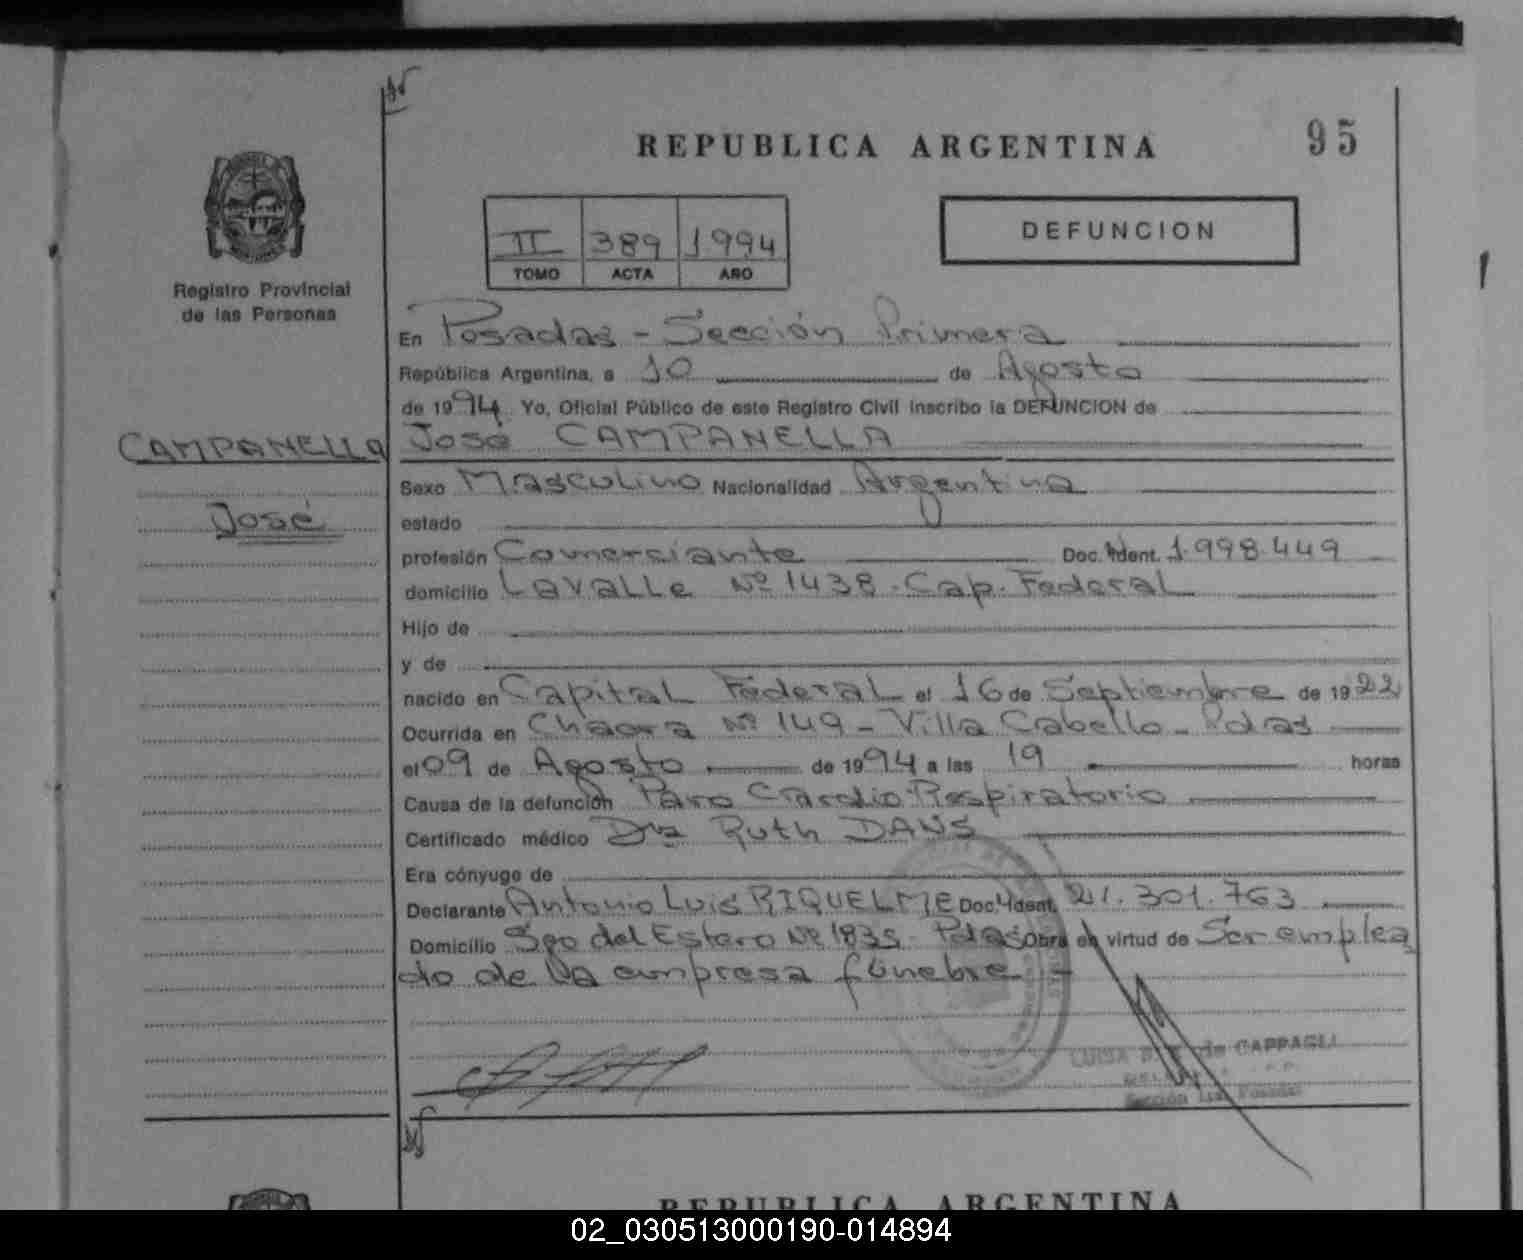 REPUBLICA ARGENTINA
95
II 389 1994
TOMO ACTA AÑO
DEFUNCION
Registro Provincial
de las Personas
En Posadas - Sección Primera
República Argentina, a 10 de Agosto
de 1994 Yo, Oficial Público de este Registro Civil inscribo la DEFUNCION de
CAMPANELLA
José CAMPANELLA
Sexo Masculino Nacionalidad Argentina
José
estado
profesión Comerciante Doc. Ident. 1.998.449
domicilio Lavalle Nº 1438 - Cap. Federal
Hijo de
y de
nacido en Capital Federal el 16 de Septiembre de 1922
Ocurrida en Chacra Nº 149 - Villa Cabello - Pdas
el 09 de Agosto de 1994 a las 19 horas
Causa de la defunción Paro Cardio Respiratorio
Certificado médico Dra Ruth DANS
Era cónyuge de
Declarante Antonio Luis RIQUELME Doc. Ident. 21.301.763
Domicilio Sgo del Estero Nº 1835 - Pdas Obra en virtud de Ser emplea
do de la empresa fúnebre
LUISA de CAPPAGLI
Sección 1ra. Posadas
REPUBLICA ARGENTINA
02_030513000190-014894